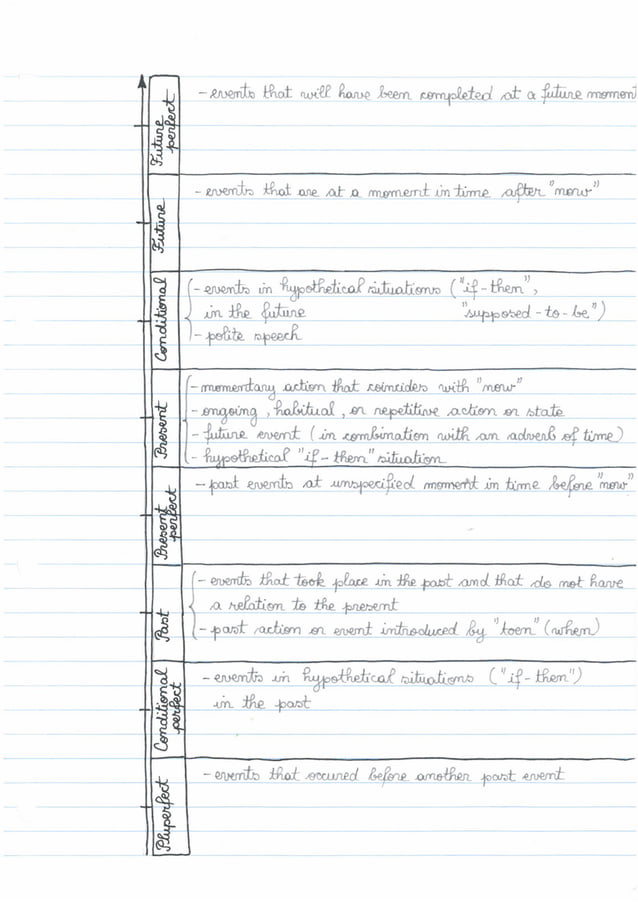 Future perfect
- events that will have been completed at a future momen
Future
- events that are at a moment in time after "now"
Conditional
- events in hypothetical situations ("if-then",
in the future "supposed-to-be")
- polite speech
Present
- momentary action that coincides with "now"
- ongoing, habitual, or repetitive action or state
- future event (in combination with an adverb of time)
- hypothetical "if-then" situation
Present perfect
- past events at unspecified moment in time before "now"
Past
- events that took place in the past and that do not have
a relation to the present
- past action or event introduced by "toen" (when)
Conditional perfect
- events in hypothetical situations ("if-then")
in the past
Pluperfect
- events that occured before another past event